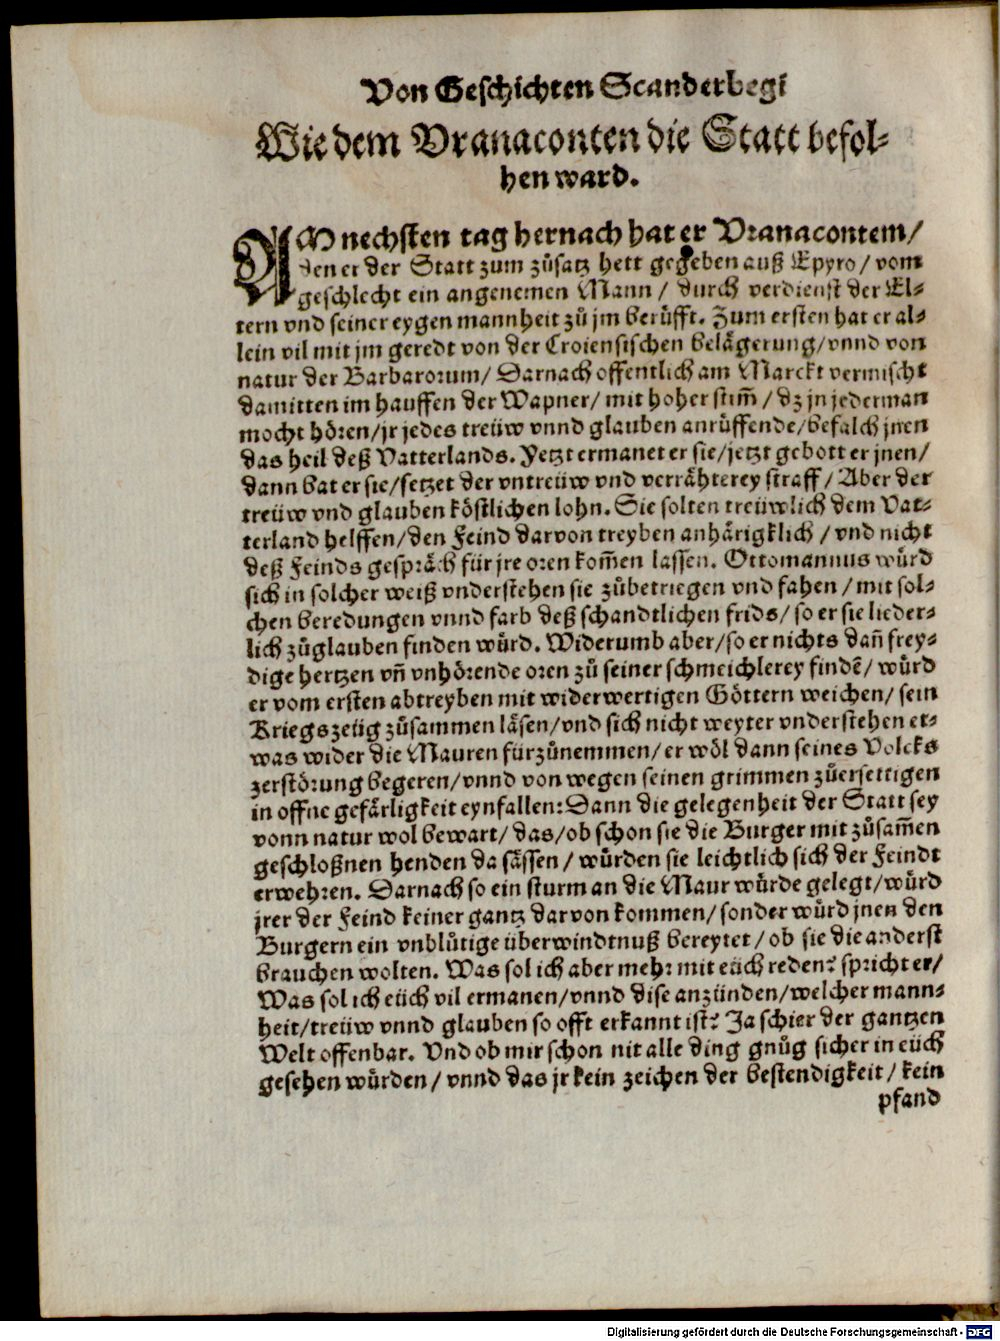 Von Geschichten Scanderbegi
Wie dem Vranaconten die Statt befol-
hen ward.
AM nechsten tag hernach hat er Vranacontem/
den er der Statt zum zůsatz hett gegeben auß Epyro/ vom
geschlecht ein angenemen Mann/ durch verdienst der El-
tern vnd seiner eygen mannheit zů jm berůfft. Zum ersten hat er al-
lein vil mit jm geredt von der Croiensischen belägerung/ vnnd von
natur der Barbarorum/ Darnach offentlich am Marckt vermischt
damitten im hauffen der Wapner/ mit hoher stim̃/ dz jn jederman
mocht hören/ jr jedes treüw vnnd glauben anrůffende/ befalch jnen
das heil deß Vatterlands. Yetzt ermanet er sie/ jetzt gebott er jnen/
dann bat er sie/ setzet der vntreüw vnd verrähterey straff/ Aber der
treüw vnd glauben köstlichen lohn. Sie solten treüwlich dem Vat-
terland helffen/ den Feind darvon treyben anhärigklich/ vnd nicht
deß Feinds gespräch für jre oren kom̃en lassen. Ottomannus würd
sich in solcher weiß vnderstehen sie zůbetriegen vnd fahen/ mit sol-
chen beredungen vnnd farb deß schandtlichen frids/ so er sie lieder-
lich zůglauben finden würd. Widerumb aber/ so er nichts dañ frey-
dige hertzen vñ vnhörende oren zů seiner schmeichlerey findẽ/ würd
er vom ersten abtreyben mit widerwertigen Göttern weichen/ sein
Kriegszeüg zůsammen läsen/ vnd sich nicht weyter vnderstehen et-
was wider die Mauren fürzůnemmen/ er wöl dann seines Volcks
zerstörung begeren/ vnnd von wegen seinen grimmen zůersettigen
in offne gefärligkeit eynfallen: Dann die gelegenheit der Statt sey
vonn natur wol bewart/ das/ ob schon sie die Burger mit zůsam̃en
geschloßnen henden da sässen/ würden sie leichtlich sich der Feindt
erwehren. Darnach so ein sturm an die Maur würde gelegt/ würd
jrer der Feind keiner gantz darvon kommen/ sonder würd jnen den
Burgern ein vnblůtige überwindtnuß bereytet/ ob sie die anderst
brauchen wolten. Was sol ich aber mehr mit eüch reden? spricht er/
Was sol ich eüch vil ermanen/ vnnd dise anzünden/ welcher mann-
heit/ treüw vnnd glauben so offt erkannt ist? Ja schier der gantzen
Welt offenbar. Vnd ob mir schon nit alle ding gnůg sicher in eüch
gesehen würden/ vnnd das jr kein zeichen der bestendigkeit/ kein
pfand
Digitalisierung gefördert durch die Deutsche Forschungsgemeinschaft - DFG